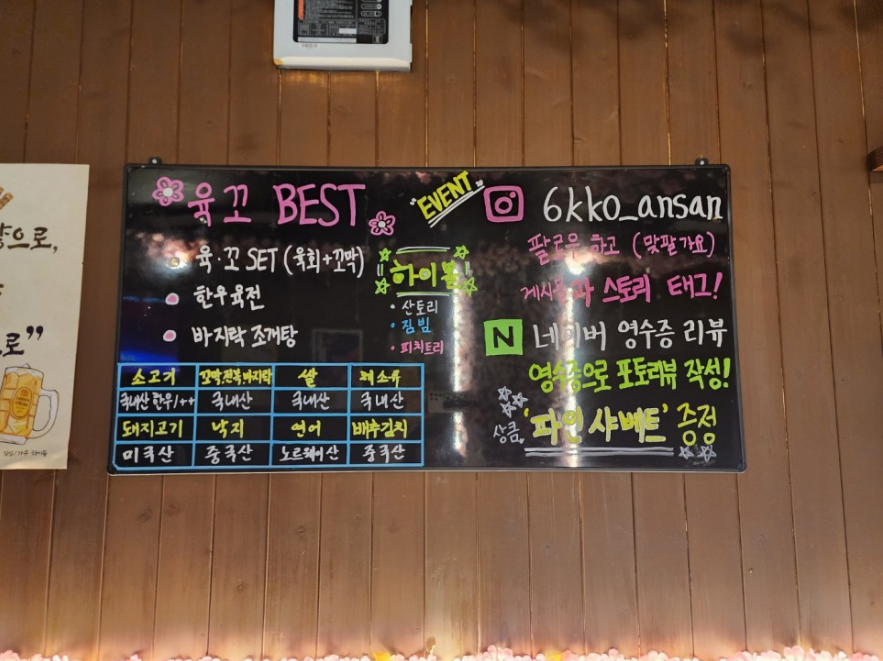 육꼬 BEST
육·꼬 SET (육회+꼬막)
한우육전
바지락 조개탕
하이볼
· 산토리
· 짐빔
· 피치트리
소고기 꼬막,전복,바지락 쌀 채소류
국내산 한우/1++ 국내산 국내산 국내산
돼지고기 낙지 연어 배추김치
미국산 중국산 노르웨이산 중국산
EVENT
6kko_ansan
팔로우 하고 (맞팔가요)
게시물과 스토리 태그!
N 네이버 영수증 리뷰
영수증으로 포토리뷰 작성!
상큼 '파인샤베트' 증정
으로,
로"